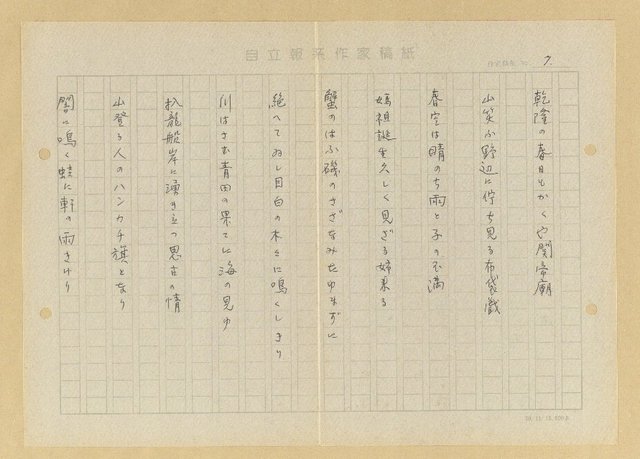 自立報系作家稿紙
7.
乾隆の春日もかくや関帝廟
山笑ふ野辺に佇ち見る布袋戯
春空は晴のち雨と子の不満
媽祖誕生久しく見ざる姉来る
蟹のはふ磯のさざなみたゆまずに
絶へて久し目白の木々に鳴くしきり
川はさむ青田の果てに海の見ゆ
扒龍船岸に湧き立つ思古の情
山登る人のハンカチ旗となり
闇に鳴く蛙に軒の雨きけり